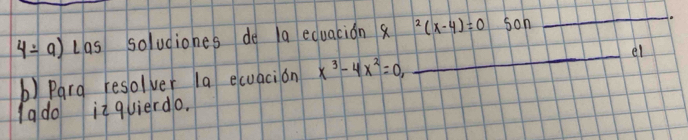 4= a) Las soluciones de la ecuación x ²(x-4)=0 son ________.
b) Para resolver la ecuación x³-4x²=0, ________ el
lado izquierdo.